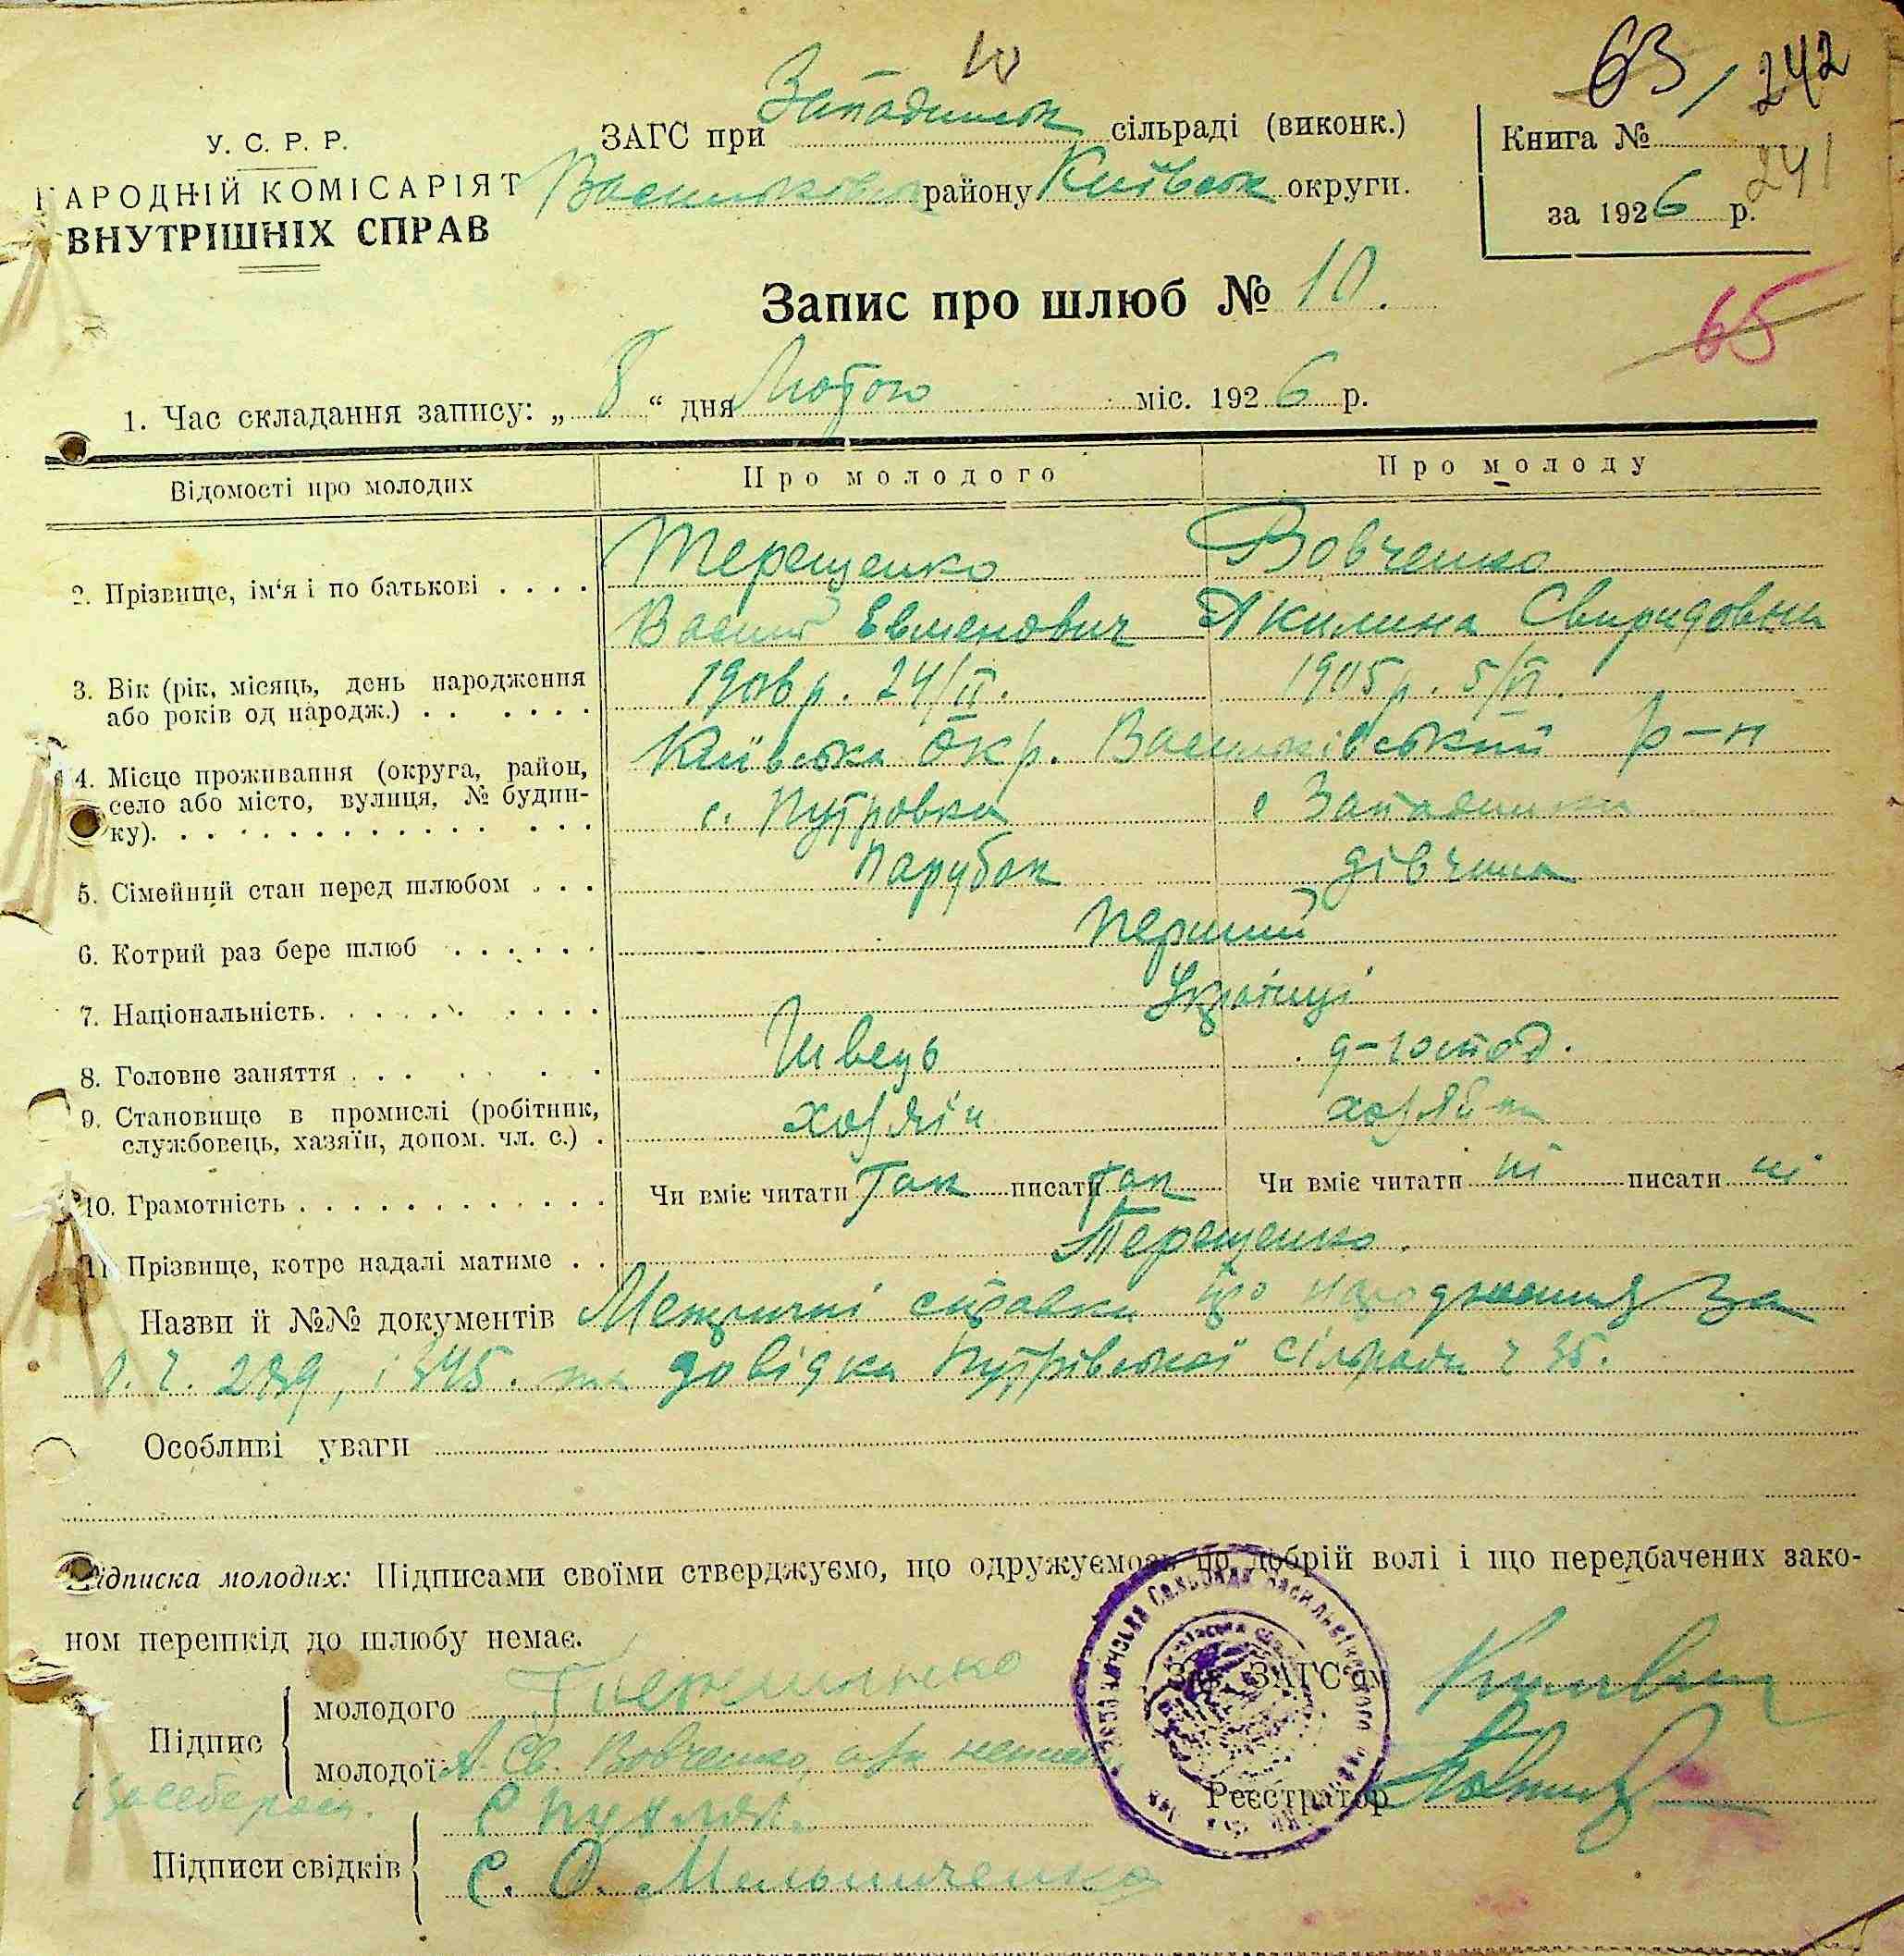 10
63 / 242
241
У. С. Р. Р.
НАРОДНІЙ КОМІСАРІЯТ
ВНУТРІШНІХ СПРАВ
ЗАГС при Западинськ сільраді (виконк.)
Васильківськ району Київськ округи.
Книга №
за 1926 р.
Запис про шлюб № 10.
65
1. Час складання запису: „ 8 “ дня Лютого міс. 1926 р.
Відомості про молодих
Про молодого
Про молоду
2. Прізвище, ім'я і по батькові . . . .
Терещенко
Вовченко
Василь Евменович
Акилина Свиридовна
3. Вік (рік, місяць, день народження
або років од народж.)
190 р. 24/II.
1905 р. 5/VI.
4. Місце проживання (округа, район,
село або місто, вулиця, № будин-
ку).
Київська Окр. Васильківський р-н
с. Путровка
с Западинка
5. Сімейний стан перед шлюбом . . .
Парубок
дівчина
6. Котрий раз бере шлюб
Перший
7. Національність.
Українці
8. Головне заняття
Швець
д-господ.
9. Становище в промислі (робітник,
службовець, хазяїн, допом. чл. с.) .
хозяїн
10. Грамотність
Чи вміє читати Так писати так
Чи вміє читати ні писати ні
11. Прізвище, котре надалі матиме . .
Терещенко.
Назви й №№ документів Метричні справки про народження за
289, і 345. та довідка Путрівської сільради ч 35.
Особливі уваги
Підписка молодих: Підписами своїми стверджуємо, що одружуємось по добрій волі і що передбачених зако-
ном перешкід до шлюбу немає.
Підпис
молодого
молодої А. Св. Вовченко,
Зав. ЗАГС'ом
Реєстратор
Підписи свідків
С. О. Мельниченко